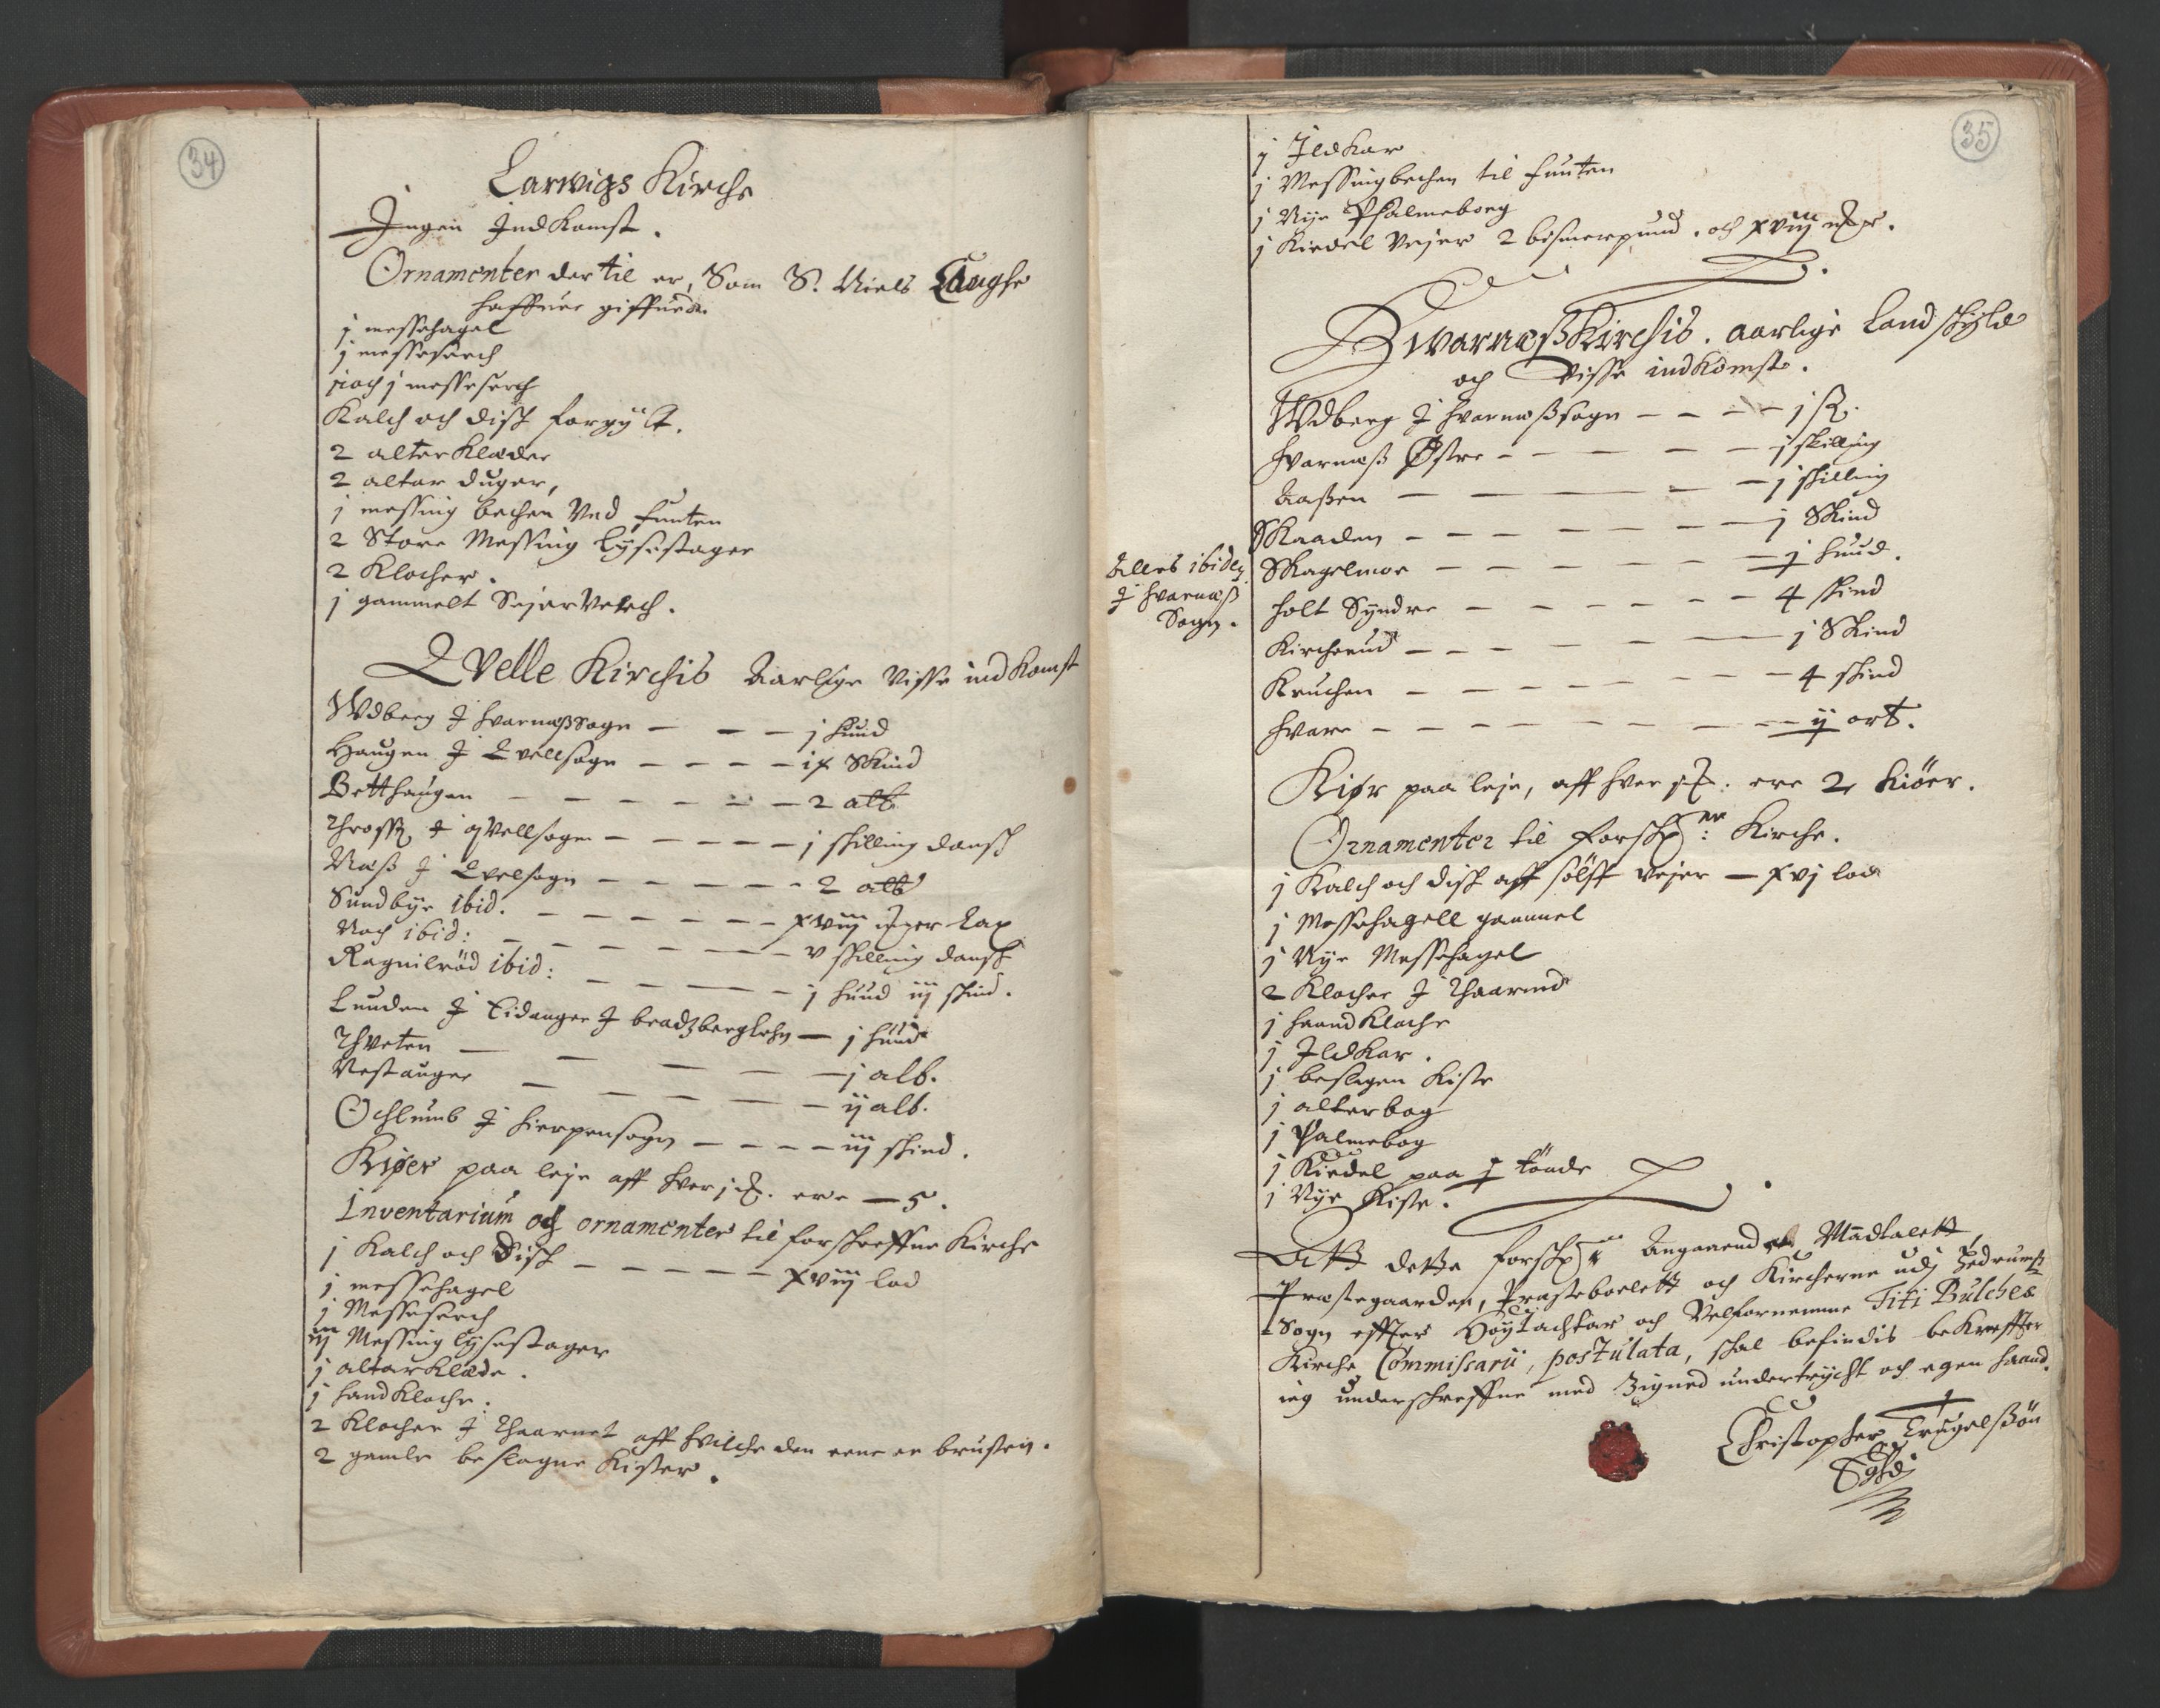 34
Larwigs Kirche
Ingen IndKomst.
Ornamenter der til er, Som S. Niels Langhe
haffuer giffuedt.
j messehagel
j messeserch
noch j messeserch
Kalch och disk forgylt.
2 alterKlæder
2 altar duger,
j messing bechen Ved funten
2 Store Messing lysestager
2 Klocher.
j gammelt SejerVerch.
QVelle Kirchis Aarlige Visse indKomst
Wdberg I HvarnæßSogn — — — j huud
Haugen I Qvellsogn — — — — ix Skind
Betthaugen — — — — — — 2 alb.
I qVellsogn — — — — — j skilling dansk
Næß I Qvelsogn — — — — — 2 alb
Sundbye ibid. — — — — — — xviij mær. Lax
Noch ibid: — — — — — — v skilling dansk
Ragnilrød ibid: — — — — — j huud iij skind.
Lunden I Eidanger I bradzberglehn — j huud
Thveten — — — — — j alb.
Vestanger — — — — — ij alb.
Ochlumb I Hierpensogn — — — — iij skind.
Kiøer paa leje aff hver j ort. ere — 5.
Inventarium och ornamenter til forskreffne Kirche
j Kalch och Disk — — — — — xviij lod
j messehagel
j Messeserch
iij Messing lysestager
j altarKlæde.
j HandKloche.
2 Klocher I Thaarnet aff hvilche den eene er brusten.
2 gamle beslagne Kister.
35
j IldKar
j Messingbechen til funten
j Nye Psalmeboeg
j Kiedel Vejer 2 bismerpund. och xviij mær.
HwarnæßKirchis. aarlige Landskyld
och Visse indKomst.
Wdberg I Hvarneßsogn — — — — j ß.
Hvarnæß Østre — — — — — j skilling
Aaßen — — — — — j skilling
SKaaden — — — — — — j Skind
SKagelmoe — — — — — — j huud.
Holt Syndre — — — — — — 4 skind
Kircherud — — — — — — j Skind
Kruchen — — — — — — — 4 skind
Hvare — — — — — — — — ij ort.
Alles ibidem
I Hvarnæß
Sogn.
Kiør paa leje, aff hver j ort. ere 2 Kiöer.
Ornamenter til forskr: ne Kirche.
j Kalch och disk aff sölff Vejer — xvj lod
j Messehagell gammel
j Nye Messehagel
2 Klocher I Thaarnet
j HaandKloche
j IldKar.
j beslagen Kiste
j alterbog
j Psalmebog
j Kiedel paa j tönde
j Nye Kiste.
Att dette forskr: ne Angaaende Mandtalett,
Præstegaarden, Præsteboelett och Kircherne udj Hedrumß
Sogn effter Höytachtbar och Velfornemme Titi Bulches
Kirche Commissarii, postulata, skal befindis bekreffter
ieg underskreffne med Zigned undertrycht och egen haand.
Christopher Trugelßön